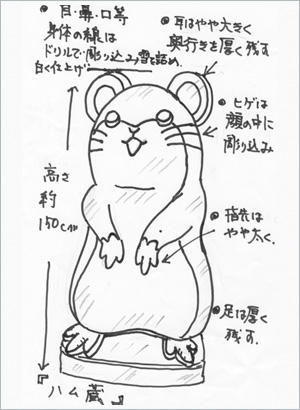 ● 目・鼻・口等
身体の線は
ドリルで彫り込み雪を詰め、
白く仕上げ
● 耳はやや大きく
奥行きを厚く残す
● ヒゲは
顔の中に
彫り込み
高さ
約
150cm
● 指先は
やや太く。
● 足は厚く
残す。
『ハム蔵』